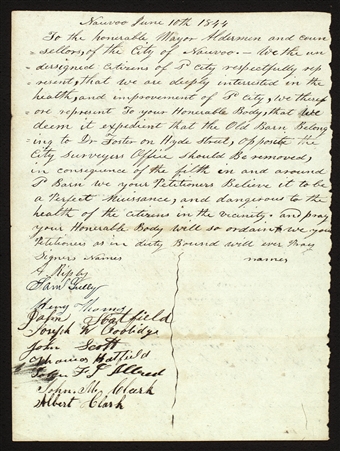 Nauvoo June 10th 1844
To the honorable Mayor Aldermen and coun
sellors, of the City of Nauvoo. — We the un
dersigned citizens of Sd City respectfully rep
resent, that we are deeply interested in the
health, and improvement of Sd City, we theref
ore represent To your Honorable Body, that we
deem it expedient that the Old Barn Belong
ing to Dr Foster on Hyde Street, opposite the
City Surveyers Office should Be removed,
in consequence of the filth in and around
Sd Barn we your Petitioners Believe it to be
a Perfect Nuisance, and dangerous to the
health of the citizens in the vicinity. and pray
your Honorable Body will so ordain & we your
Petitioners as in duty Bound will ever Pray
Signers Names names
Saml Gully
Henry Thomas
John Hatfield
Joseph W Coolidge
John Scott
Hatfield
Allred
John M. Clark
Albert Clark